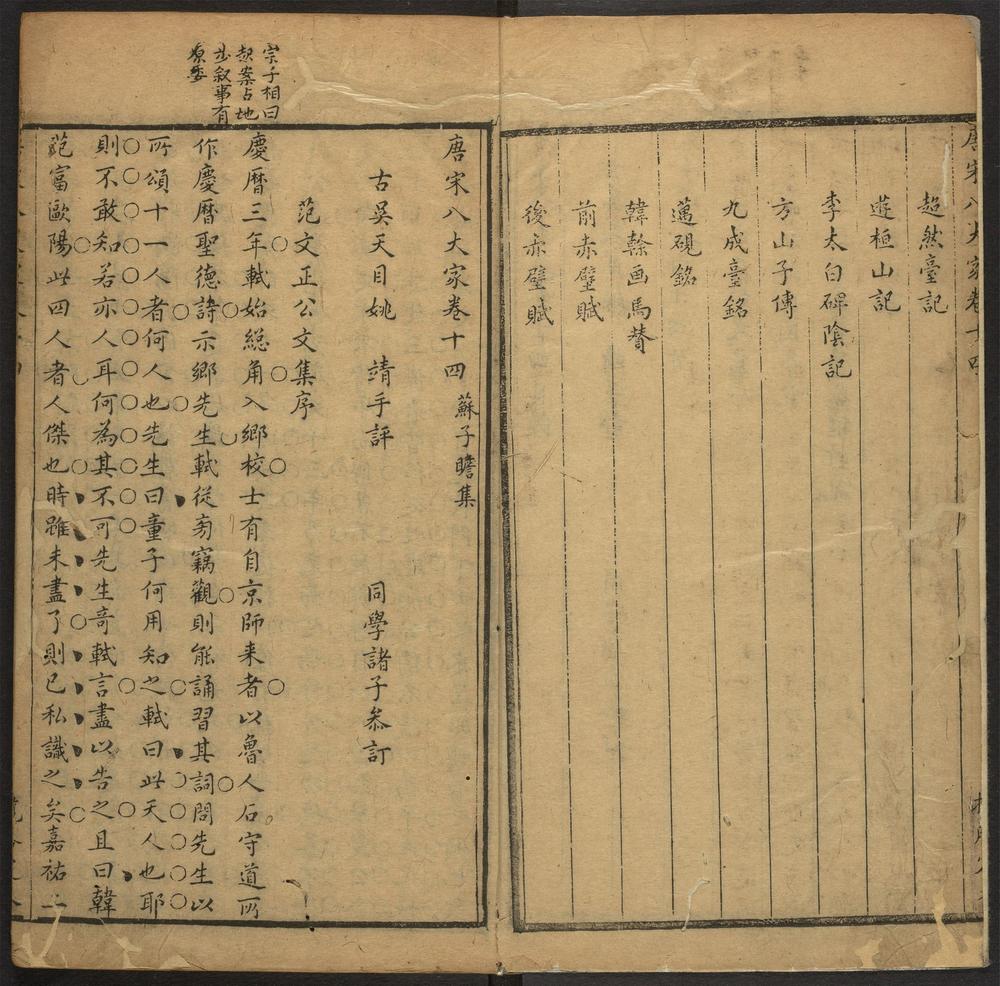 超然臺記
遊桓山記
李太白碑陰記
方山子傳
九成臺銘
邁硯銘
韓幹画馬賛
前赤壁賦
後赤壁賦
宗子相曰
起案占地
步叙事有
原委
唐宋八大家卷十四 蘇子瞻集
古吳天目姚 靖手評 同學諸子叅訂
范文正公文集序
慶曆三年軾始総角入鄉校士有自京師来者以魯人石守道所
作慶曆聖德詩示鄉先生軾從旁竊觀則能誦習其詞問先生以
所頌十一人者何人也先生曰童子何用知之軾曰此天人也耶
則不敢知若亦人耳何為其不可先生竒軾言盡以告之且曰韓
范富歐陽此四人者人傑也時雖未盡了則已私識之矣嘉祐二